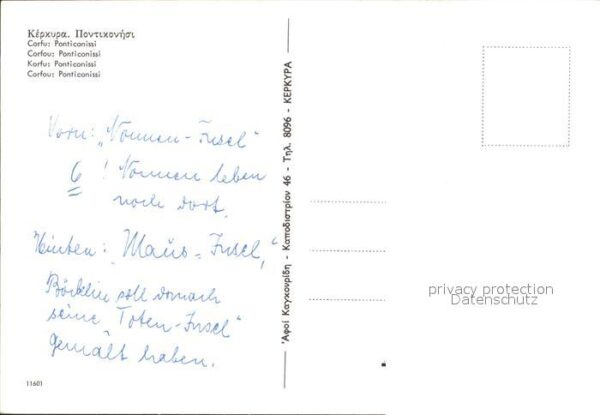 Κέρκυρα. Ποντικονήσι
Corfu: Ponticonissi
Corfou: Ponticonissi
Korfu: Ponticonissi
Corfou: Ponticonissi
Vorn: „Nonnen-Insel“
6 ! Nonnen leben
noch dort.
Hinten: „Maus-Insel,“
Böcklin soll danach
seine „Toten-Insel“
gemalt haben.
11601
'Αφοί Καγκουρίδη - Καποδιστρίου 46 - Τηλ. 8096 - ΚΕΡΚΥΡΑ
privacy protection
Datenschutz